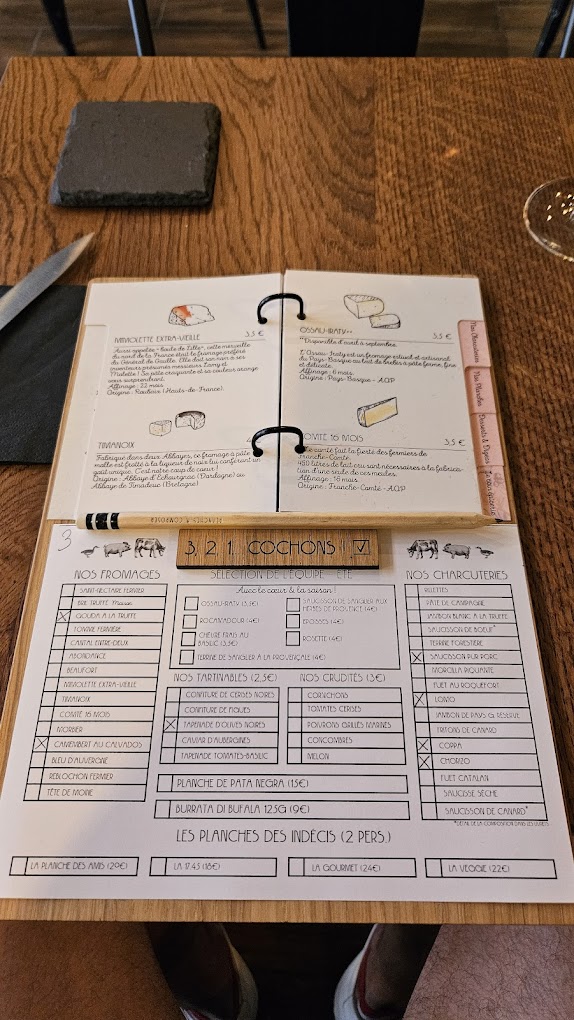 MIMOLETTE EXTRA-VIEILLE 3,5 €
Aussi appelée "boule de Lille", cette merveille
du nord de la France était le fromage préféré
du Général de Gaulle. Elle doit son nom à ses
inventeurs présumés messieurs Lamy et
Molette ! Sa pâte craquante et sa couleur orange
vous surprendront.
Affinage : 22 mois.
Origine : Roubaix (Hauts-de-France).
TIMANOIX
Fabriqué dans deux Abbayes, ce fromage à pâte
molle est frotté à la liqueur de noix lui conférant un
goût unique. C'est notre coup de cœur !
Origine : Abbaye d'Echourgnac (Dordogne) ou
Abbaye de Timadeuc (Bretagne)
OSSAU-IRATY** 3,5 €
**Disponible d'avril à septembre.
L'Ossau-Iraty est un fromage estival et artisanal
du Pays-Basque au lait de brebis à pâte ferme, fine
et délicate.
Affinage : 6 mois.
Origine : Pays-Basque - AOP
COMTÉ 16 MOIS 3,5 €
Le comté fait la fierté des fermiers de
Franche-Comté.
450 litres de lait cru sont nécessaires à la fabrica-
tion d'une seule de ces meules.
Affinage : 16 mois.
Origine : Franche-Comté - AOP
Nos Planches
Desserts & Digeo
PLANCHES À COMPOSER
3
3 2 1 COCHONS !
NOS FROMAGES
SAINT-NECTAIRE FERMIER
BRIE TRUFFÉ Maison
GOUDA À LA TRUFFE
TOMME FERMIÈRE
CANTAL ENTRE-DEUX
ABONDANCE
BEAUFORT
MIMOLETTE EXTRA-VIEILLE
TIMANOIX
COMTÉ 16 MOIS
MORBIER
CAMEMBERT AU CALVADOS
BLEU D'AUVERGNE
REBLOCHON FERMIER
TÊTE DE MOINE
SÉLECTION DE L'ÉQUIPE ÉTÉ
Avec le cœur & la saison !
OSSAU-IRATY (3,5€)
ROCAMADOUR (4€)
CHÈVRE FRAIS AU
BASILIC (3,5€)
TERRINE DE SANGLIER À LA PROVENÇALE (4€)
SAUCISSON DE SANGLIER AUX
HERBES DE PROVENCE (4€)
EPOISSES (4€)
ROSETTE (4€)
NOS TARTINABLES (2,5€)
CONFITURE DE CERISES NOIRES
CONFITURE DE FIGUES
TAPENADE D'OLIVES NOIRES
CAVIAR D'AUBERGINES
TAPENADE TOMATES-BASILIC
NOS CRUDITÉS (3€)
CORNICHONS
TOMATES CERISES
POIVRONS GRILLÉS MARINÉS
CONCOMBRES
MELON
PLANCHE DE PATA NEGRA (15€)
BURRATA DI BUFALA 125G (9€)
NOS CHARCUTERIES
RILLETTES
PÂTÉ DE CAMPAGNE
JAMBON BLANC À LA TRUFFE
SAUCISSON DE BOEUF*
TERRINE FORESTIÈRE
SAUCISSON PUR PORC
MORCILLA PIQUANTE
FUET AU ROQUEFORT
LOMO
JAMBON DE PAYS GR RÉSERVE
FRITONS DE CANARD
COPPA
CHORIZO
FUET CATALAN
SAUCISSE SÈCHE
SAUCISSON DE CANARD*
*DÉTAIL DE LA COMPOSITION DANS LES LIVRETS
LES PLANCHES DES INDÉCIS (2 PERS.)
LA PLANCHE DES AMIS (20€)
LA 17.45 (18€)
LA GOURMET (24€)
LA VEGGIE (22€)